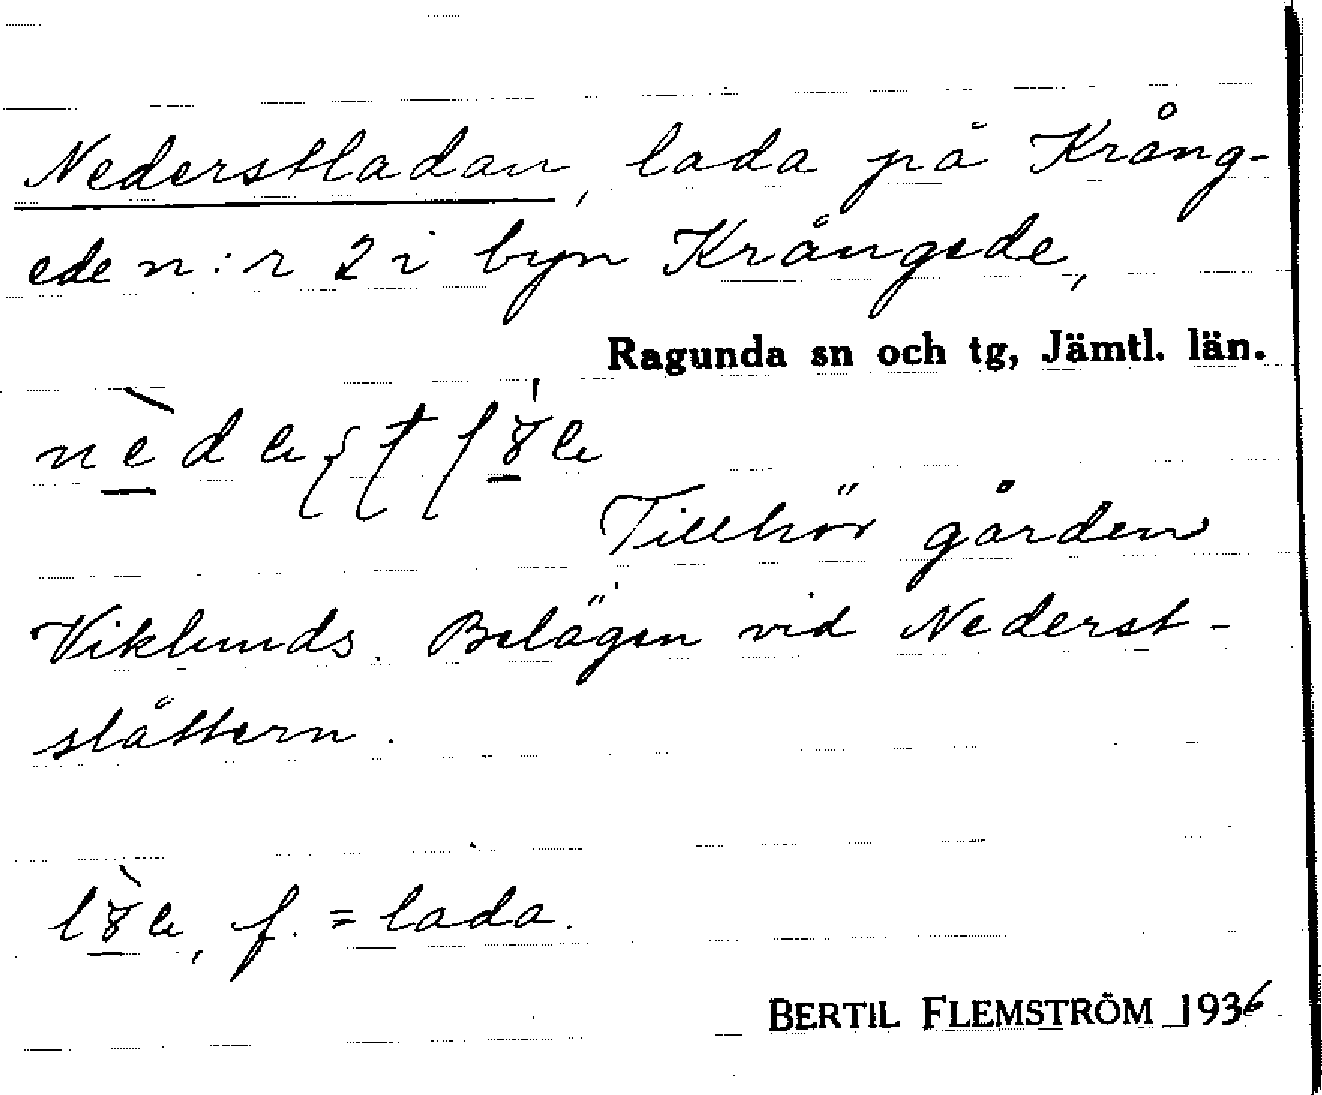 Nederstladan, lada på Krång-
ede n:r 2 i byn Krångede,
Ragunda sn och tg, Jämtl. län.
Tillhör gården
Viklunds. Belägen vid Nederst-
slåttern.
f. = lada.
BERTIL FLEMSTRÖM 1936